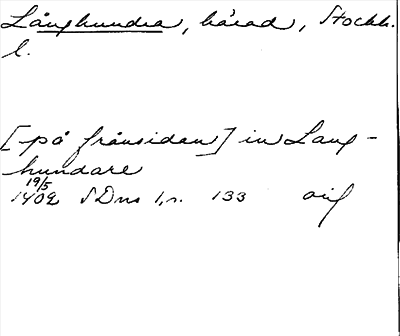 Långhundra, härad, Stockh.
l.
[på frånsidan] in Lang-
hundare
19/5
1402 SDns 1, n. 133 orig